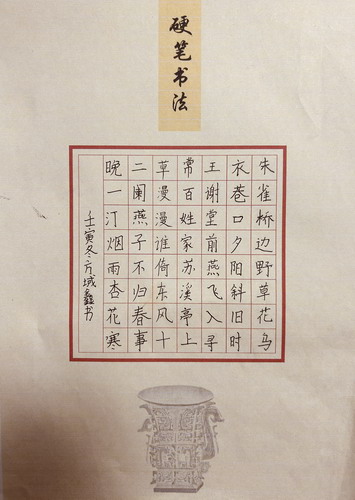 硬笔书法
朱雀桥边野草花乌
衣巷口夕阳斜旧时
王谢堂前燕飞入寻
常百姓家苏溪亭上
草漫漫谁倚东风十
二阑燕子不归春事
晚一汀烟雨杏花寒
壬寅冬方城鑫书